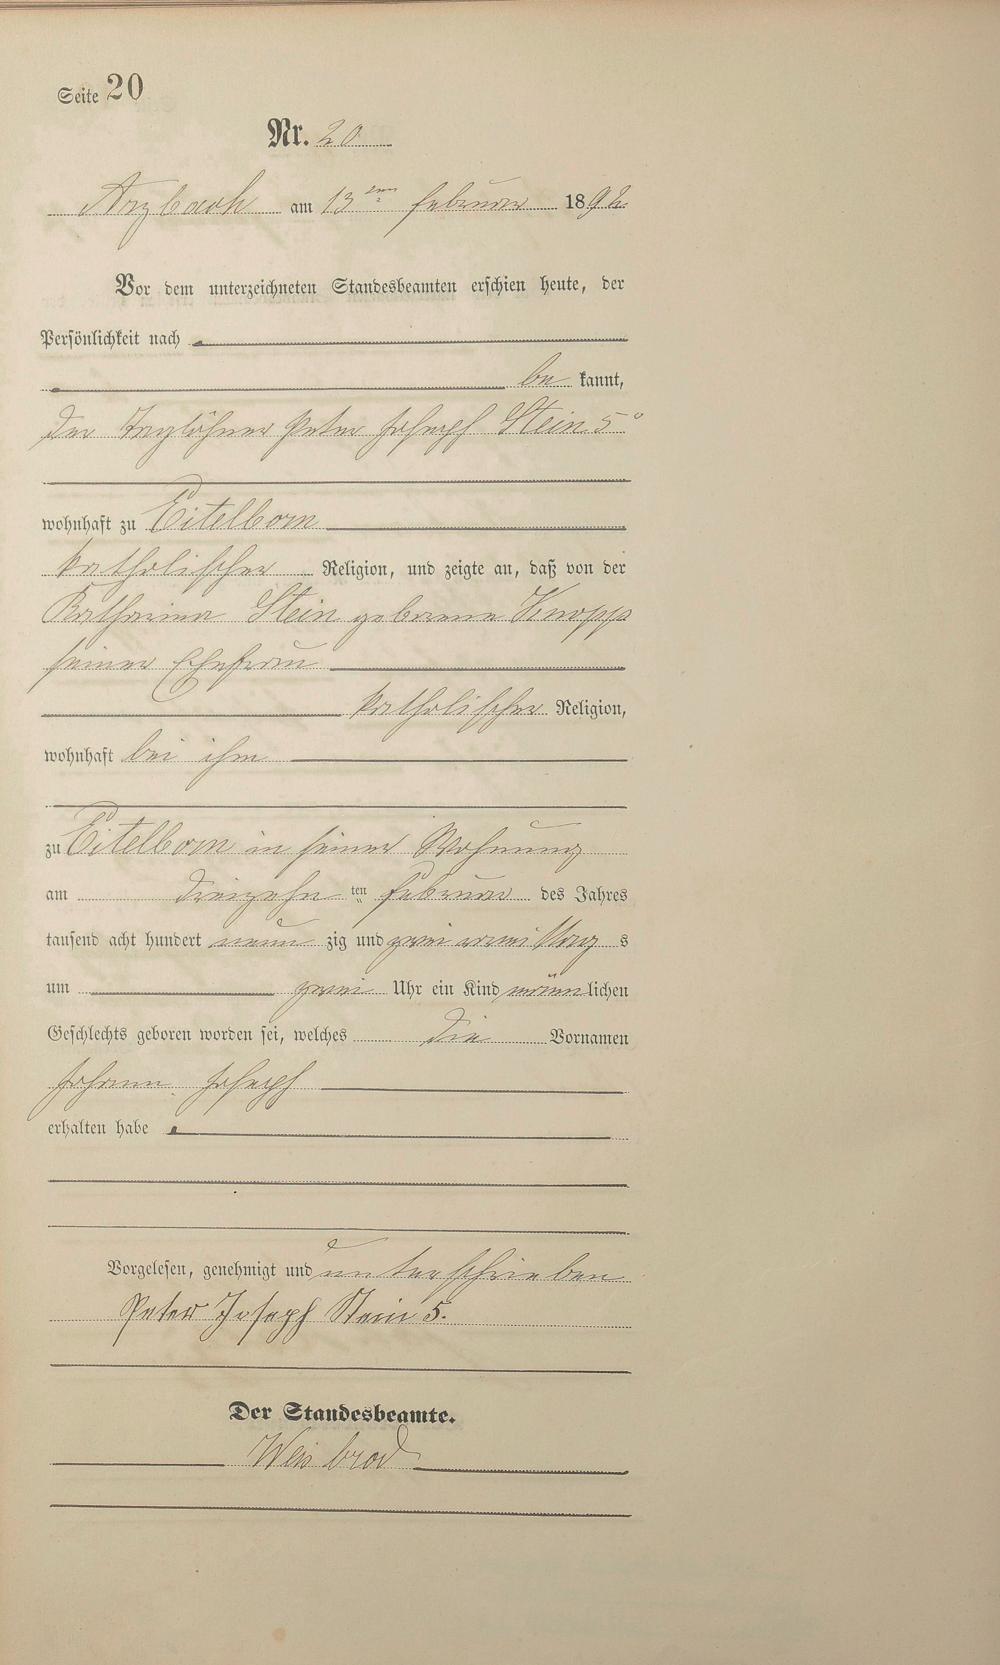 Seite 20
Nr. 20
Arzbach am 13ten Februar 1892
Vor dem unterzeichneten Standesbeamten erschien heute, der
Persönlichkeit nach
be kannt,
der Taglöhner Peter Joseph Stein 5r
wohnhaft zu Eitelborn
katholischer Religion, und zeigte an, daß von der
Katharina Stein geborene Knopp
seiner Ehefrau
katholischer Religion,
wohnhaft bei ihm
zu Eitelborn in seiner Wohnung
am dreizehn ten Februar des Jahres
tausend acht hundert neun zig und zwei vormittag s
um zwei Uhr ein Kind männlichen
Geschlechts geboren worden sei, welches die Vornamen
Johann Joseph
erhalten habe
Vorgelesen, genehmigt und unterschrieben
Peter Joseph Stein 5.
Der Standesbeamte.
Weisbrod